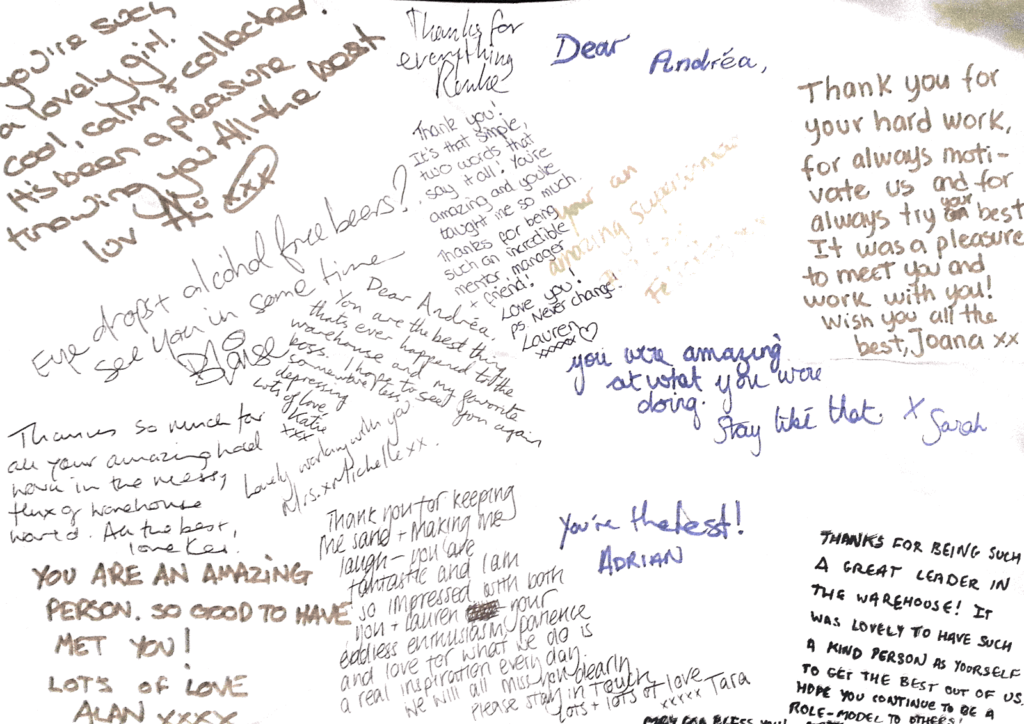 you're such
a lovely girl.
cool, calm + collected.
It's been a pleasure
knowing you All the best
luv
xxx
Thanks for
everything
Dear Andréa,
Thank you for
your hard work,
for always moti-
vate us and for
always try your best
It was a pleasure
to meet you and
work with you!
Wish you all the
best, Joana xx
Thank you!
It's that simple,
two words that
say it all! You're
amazing and you've
taught me so much.
Thanks for being
such an incredible
mentor, manager
+ friend!
Love you!
ps. Never change!
Lauren
xxxxx ♡
your an
amazing
Eye drops + alcohol free beers?
see you in some time
Blaise
Dear Andréa,
You are the best thing
thats ever happened to the
warehouse and my favorite
boss. I hope to see you again
somewhere less
depressing
Lots of love
Katie
xxx
you were amazing
at what you were
doing.
Stay like that. X Sarah
Thanks so much for
all your amazing hard
work in the messy
flux of warehouse
world. All the best,
love
Lovely working with you
Michelle xx.
Thank you for keeping
me sane + making me
laugh – you are
fantastic and I am
so impressed with both
you + Lauren your
endless enthusiasm, patience
and love for what we do is
a real inspiration every day.
We will all miss you dearly
Please stay in touch
lots + lots of love
xxxx Tara
You're the best!
ADRIAN
YOU ARE AN AMAZING
PERSON. SO GOOD TO HAVE
MET YOU!
LOT'S OF LOVE
ALAN xxxx
THANKS FOR BEING SUCH
A GREAT LEADER IN
THE WAREHOUSE! IT
WAS LOVELY TO HAVE SUCH
A KIND PERSON AS YOURSELF
TO GET THE BEST OUT OF US.
HOPE YOU CONTINUE TO BE A
ROLE-MODEL TO OTHERS